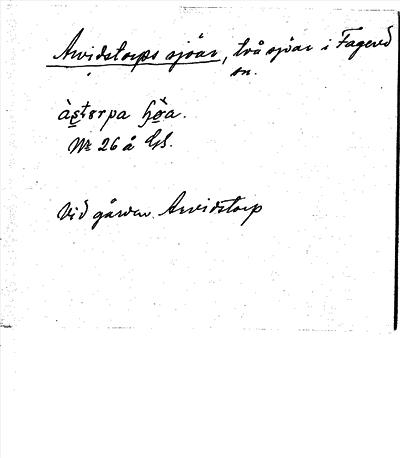 Arvidstorps sjöar, två sjöar i Fagered
sn.
àsterpa
Nr 26 å
Vid gården Arvidstorp